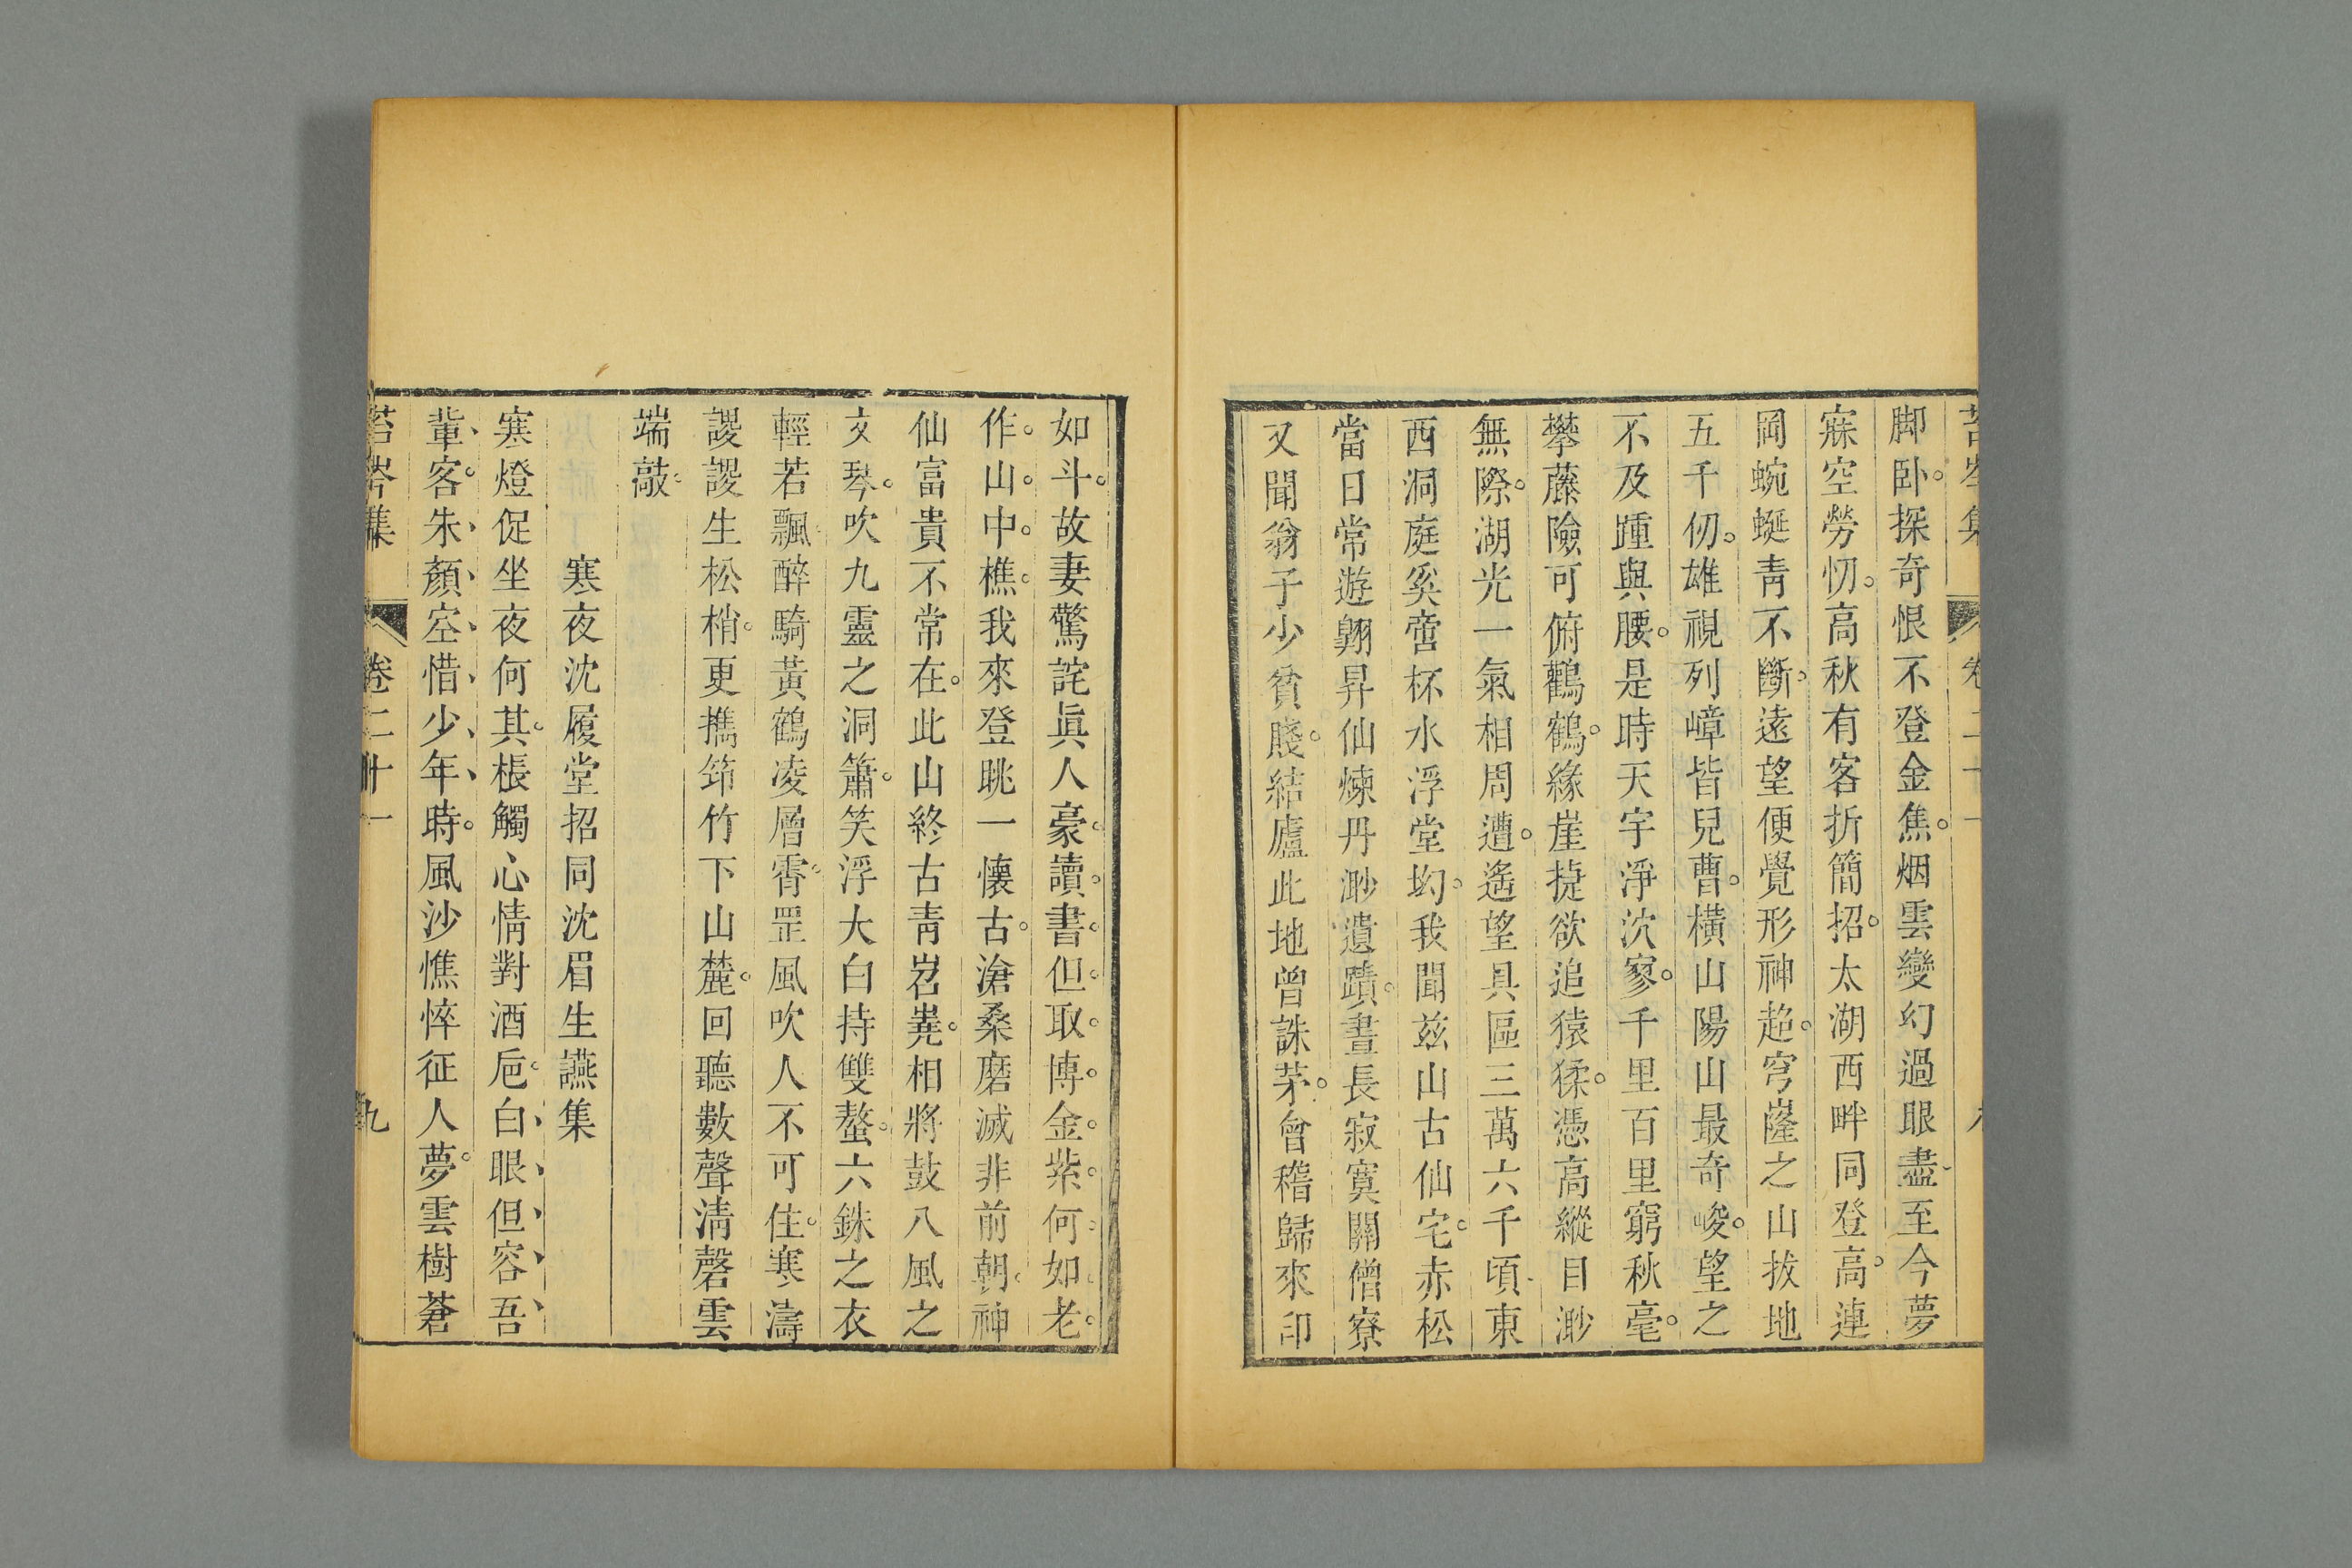 苔岑集 卷二十一 八
脚卧探奇恨不登金焦烟雲變幻過眼盡至今夢
寐空勞忉高秋有客折簡招太湖西畔同登高連
岡蜿蜒靑不斷遠望便覺形神超穹窿之山拔地
五千仞雄視列嶂皆兒曹橫山陽山最奇峻望之
不及踵與腰是時天宇淨泬寥千里百里窮秋毫
攀藤險可俯鸛鶴緣崖捷欲追猿猱憑高縱目渺
無際湖光一氣相周遭遙望具區三萬六千頃東
西洞庭奚啻杯水浮堂坳我聞茲山古仙宅赤松
當日常遊翺昇仙煉丹渺遺蹟晝長寂寞關僧寮
又聞翁子少貧賤結廬此地曾誅茅會稽歸來印
如斗故妻驚詫眞人豪讀書但取博金紫何如老
作山中樵我來登眺一懷古滄桑磨滅非前朝神
仙富貴不常在此山終古靑岧嶤相將鼓八風之
文琴吹九靈之洞簫笑浮大白持雙螯六銖之衣
輕若飄醉騎黃鶴凌層霄罡風吹人不可住寒濤
謖謖生松梢更攜筇竹下山麓回聽數聲淸磬雲
端敲
寒夜沈履堂招同沈眉生讌集
寒燈促坐夜何其棖觸心情對酒巵白眼但容吾
輩客朱顏空惜少年時風沙憔悴征人夢雲樹蒼
苔岑集 卷二十一 九